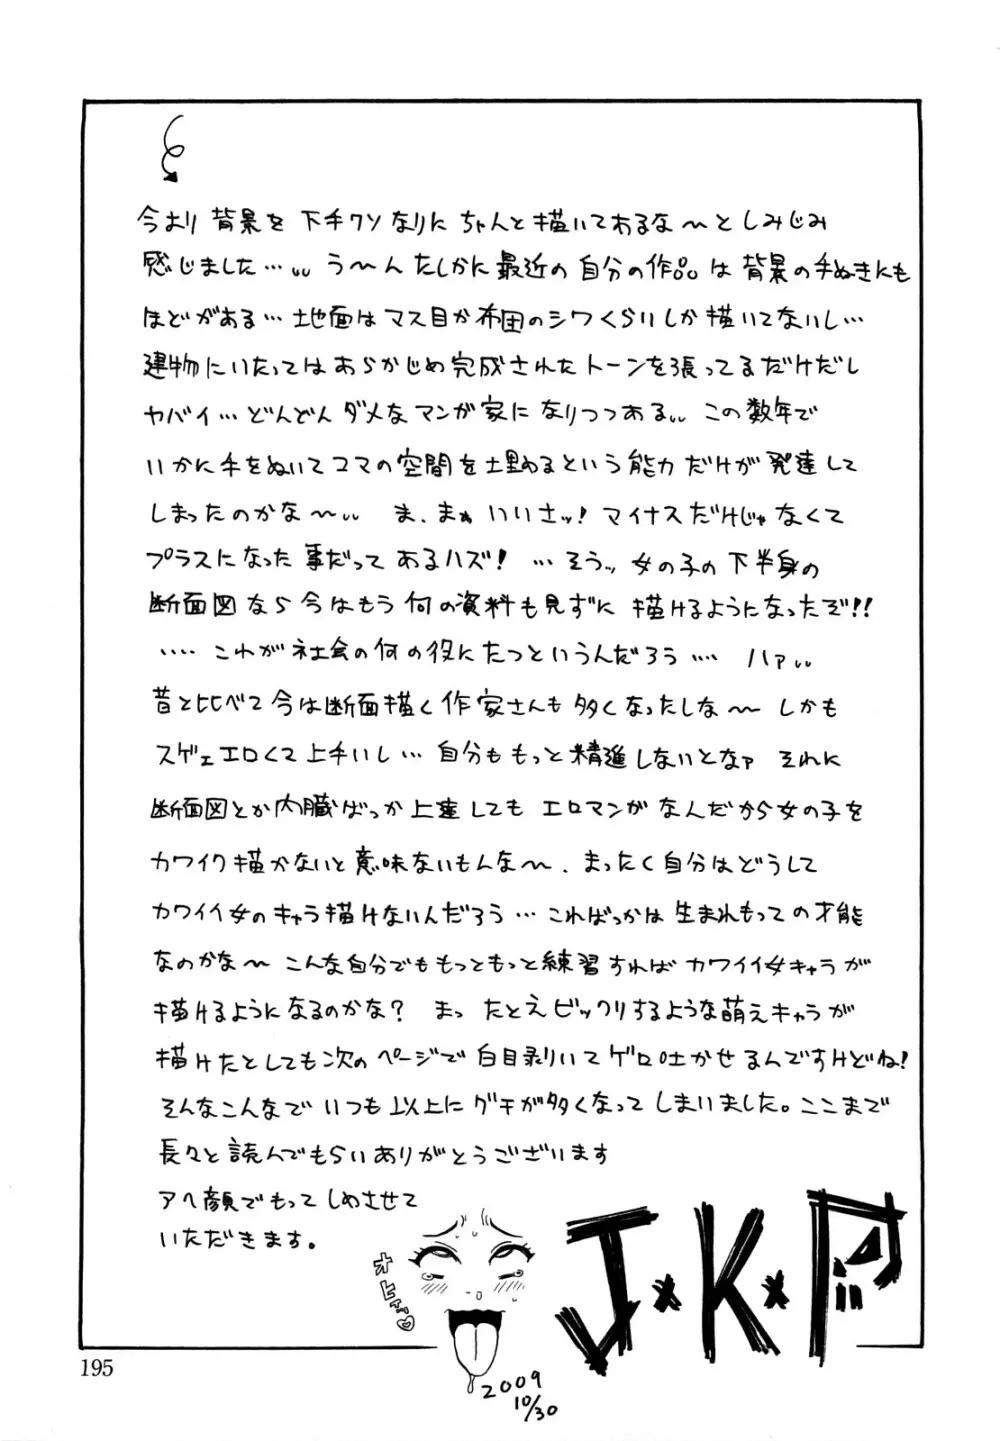 今より背景を下手クソなりにちゃんと描いてあるな〜としみじみ
感じました…。。う〜んたしかに最近の自分の作品は背景の手ぬきにも
ほどがある…地面はマス目か布団のシワくらいしか描いてないし…
建物にいたってはあらかじめ完成されたトーンを張ってるだけだし
ヤバイ…どんどんダメなマンガ家になりつつある。。この数年で
いかに手をぬいてコマの空間を埋めるという能力だけが発達して
しまったのかな〜。。ま、まぁいいさッ!マイナスだけじゃなくて
プラスになった事だってあるハズ!…そうッ女の子の下半身の
断面図なら今はもう何の資料も見ずに描けるようになったぞ!!
‥‥これが社会の何の役にたつというんだろう‥‥ハァ。。
昔と比べて今は断面描く作家さんも多くなったしな〜しかも
スゲェエロくて上手いし…自分ももっと精進しないとなァそれに
断面図とか内臓ばっか上達してもエロマンガなんだから女の子を
カワイク描かないと意味ないもんな〜、まったく自分はどうして
カワイイ女のキャラ描けないんだろう…こればっかは生まれもっての才能
なのかな〜こんな自分でももっともっと練習すればカワイイ女キャラが
描けるようになるのかな?まったとえビックリするような萌えキャラが
描けたとしても次のページで白目剥いてゲロ吐かせるんですけどね!
そんなこんなでいつも以上にグチが多くなってしまいました。ここまで
長々と読んでもらいありがとうございます
アヘ顔でもってしめさせて
いただきます。
オヒョ♡
J★K★P!!
2009
10/30
195